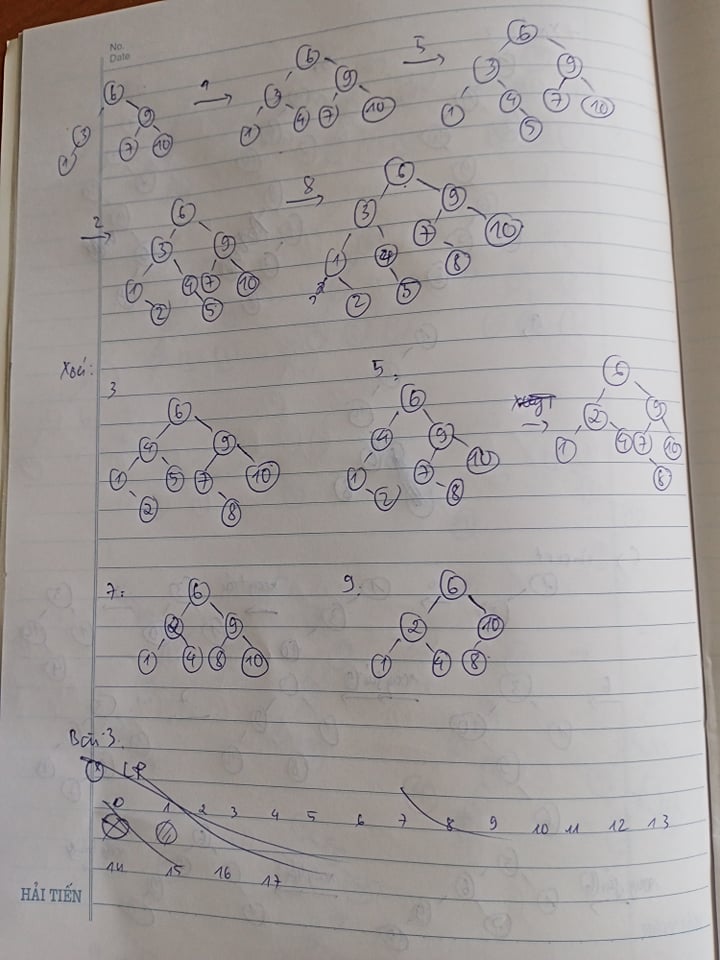 No.
Date
6 9 3 1 7 10
4 →
6 3 9 1 4 7 10
5 →
6 3 9 1 4 7 10 5
2 →
6 3 9 1 4 7 10 2 5
8 →
6 3 9 1 4 7 10 2 5 8
Xoá:
3
6 4 9 1 5 7 10 2 8
5:
6 4 9 1 7 10 2 8
→
6 2 9 1 4 7 10 8
7:
6 2 9 1 4 8 10
9:
6 2 10 1 4 8
Bài 3.
0 1 2 3 4 5 6 7 8 9 10 11 12 13
14 15 16 17
HẢI TIẾN